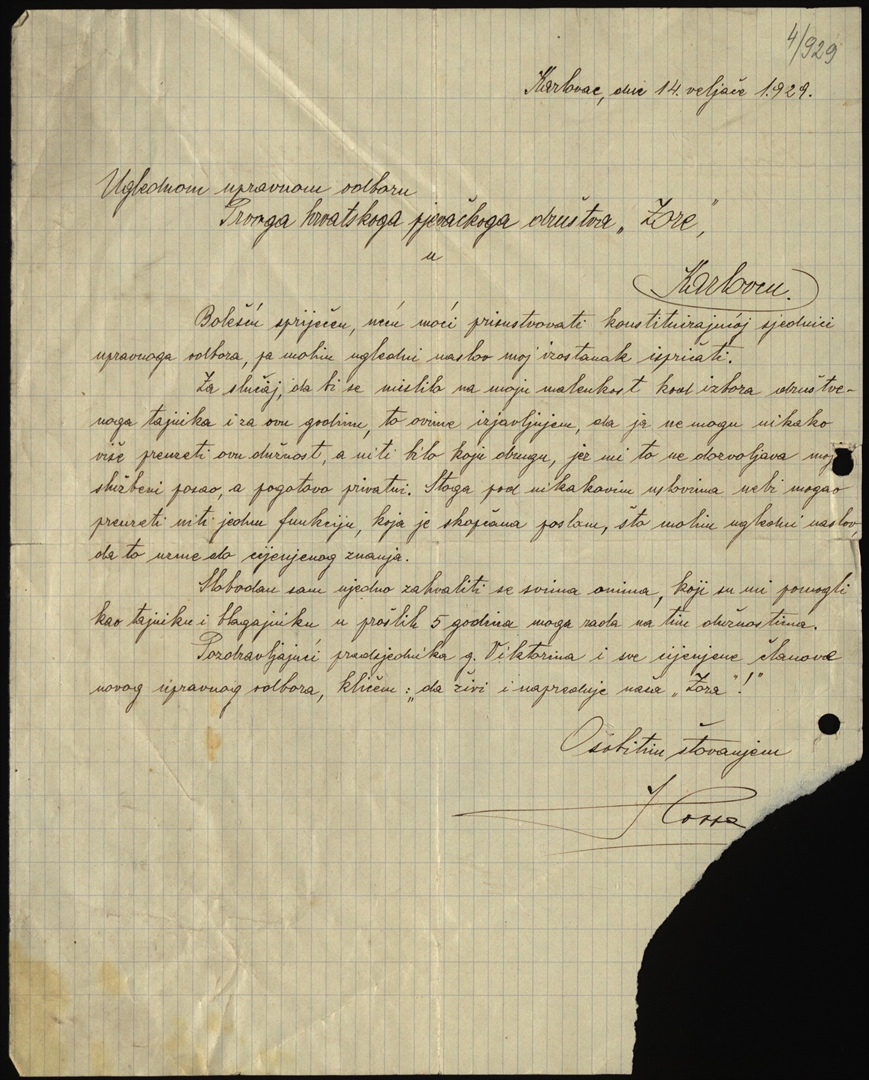 4/929
Karlovac, dne 14. veljače 1929.
Uglednom upravnom odboru
Prvoga hrvatskoga pjevačkoga društva „Zore",
u
Karlovcu.
Bolešću spriječen, neću moći prisustvovati konstituirajućoj sjednici
upravnoga odbora, pa molim ugledni naslov moj izostanak ispričati.
Za slučaj, da bi se mislilo na moju malenkost kod izbora društve-
noga tajnika i za ovu godinu, to ovime izjavljujem, da ja ne mogu nikako
više preuzeti ovu dužnost, a niti bilo koju drugu, jer mi to ne dozvoljava moj
službeni posao, a pogotovo privatni. Stoga pod nikakovim uslovima nebi mogao
preuzeti niti jednu funkciju, koja je skopčana poslom, što molim ugledni naslov,
da to uzme do cijenjenog znanja.
Slobodan sam ujedno zahvaliti se svima onima, koji su mi pomogli
kao tajniku i blagajniku u prošlih 5 godina moga rada na tim dužnostima.
Pozdravljajući predsjednika g. Viktorina i sve cijenjene članove
novog upravnog odbora, kličem: „da živi i napreduje naša „Zora"!"
Osobitim štovanjem